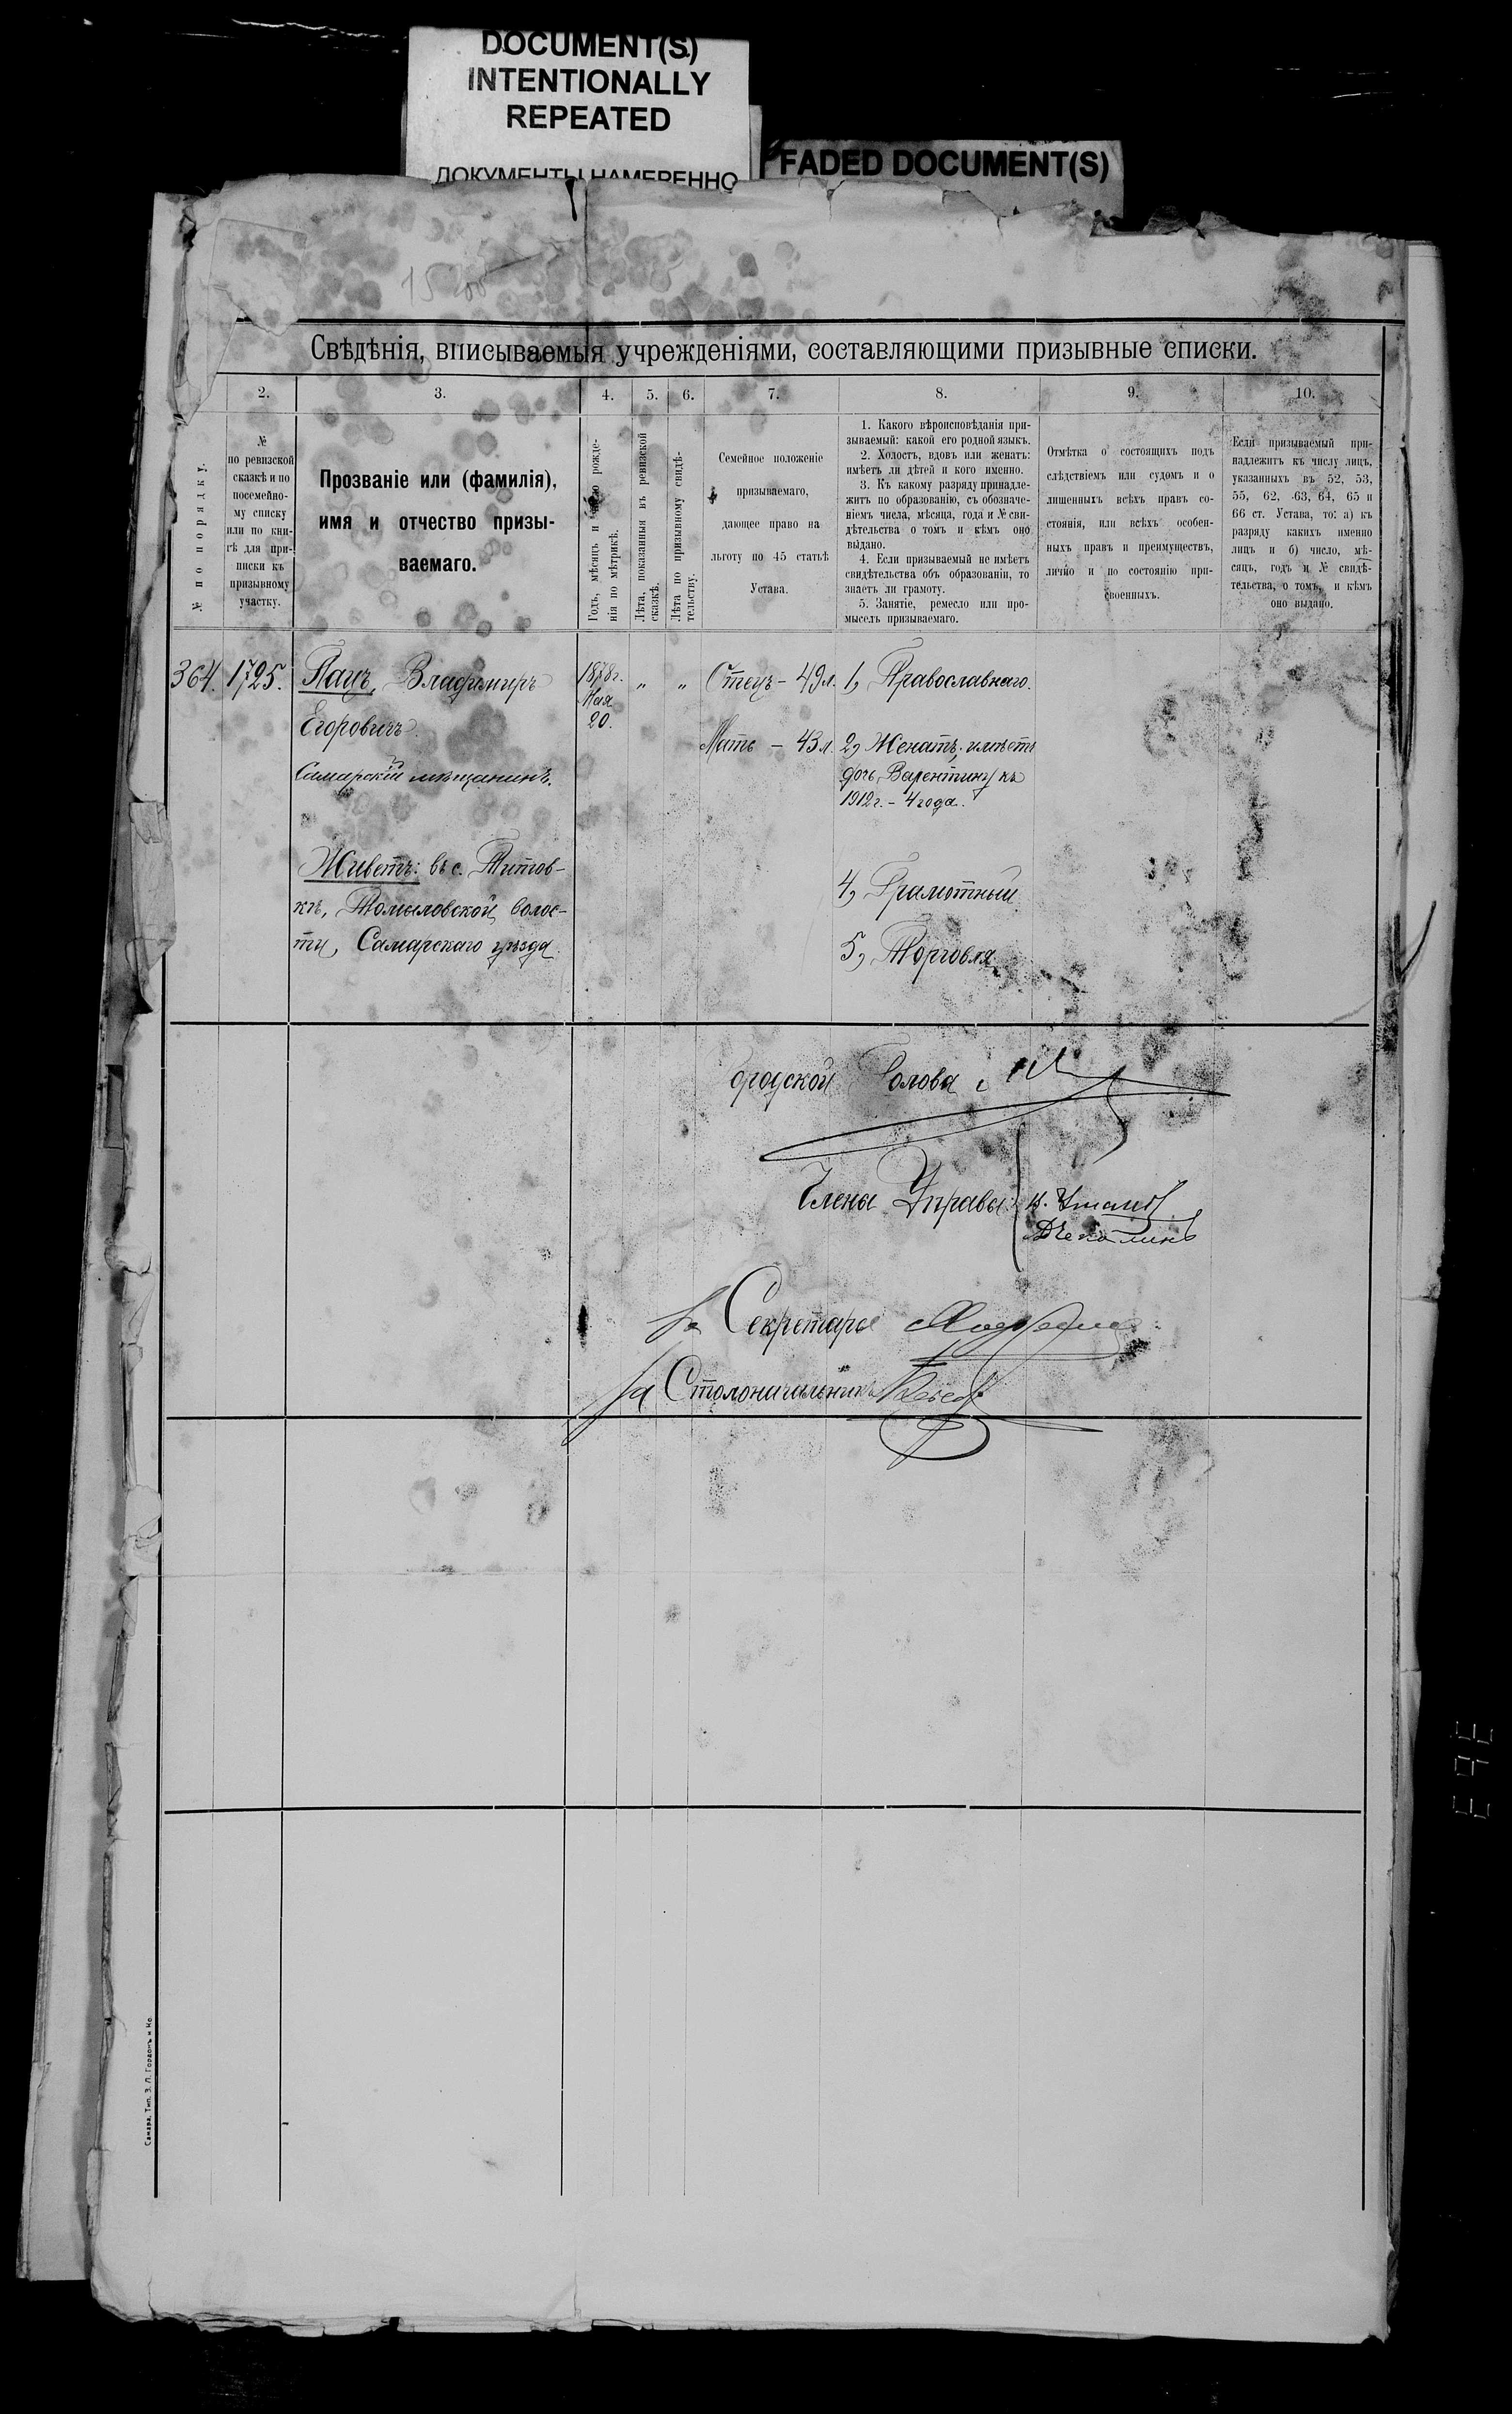 DOCUMENT(S)
INTENTIONALLY
REPEATED
ДОКУМЕНТЫ НАМЕРЕННО
FADED DOCUMENT(S)
Свѣдѣнія, вписываемыя учрежденіями, составляющими призывные списки.
2.
3.
4.
5.
6.
7.
8.
9.
10.
№ по порядку.
№
по ревизской
сказкѣ и по
посемейно-
му списку
или по кни-
гѣ для при-
писки къ
призывному
участку.
Прозваніе или (фамилія),
имя и отчество призы-
ваемаго.
Годъ, мѣсяцъ и число рожде-
нія по метрикѣ.
Лѣта, показанныя въ ревизской
сказкѣ.
Лѣта по призывному свидѣ-
тельству.
Семейное положеніе
призываемаго,
дающее право на
льготу по 45 статьѣ
Устава.
1. Какого вѣроисповѣданія при-
зываемый: какой его родной языкъ.
2. Холостъ, вдовъ или женатъ:
имѣетъ ли дѣтей и кого именно.
3. Къ какому разряду принадле-
житъ по образованію, съ обозначе-
ніемъ числа, мѣсяца, года и № сви-
дѣтельства о томъ и кѣмъ оно
выдано.
4. Если призываемый не имѣетъ
свидѣтельства объ образованіи, то
знаетъ ли грамоту.
5. Занятіе, ремесло или про-
мыселъ призываемаго.
Отмѣтка о состоящихъ подъ
слѣдствіемъ или судомъ и о
лишенныхъ всѣхъ правъ со-
стоянія, или всѣхъ особен-
ныхъ правъ и преимуществъ,
лично и по состоянію при-
своенныхъ.
Если призываемый при-
надлежитъ къ числу лицъ,
указанныхъ въ 52, 53,
55, 62, 63, 64, 65 и
66 ст. Устава, то: а) къ
разряду какихъ именно
лицъ и б) число, мѣ-
сяцъ, годъ и № свидѣ-
тельства, о томъ, и кѣмъ
оно выдано.
364. 1725. Пацъ, Владимиръ
Егоровичъ
Самарскій мѣщанинъ.
Живетъ: въ с. Титов-
кѣ, Томыловской волос-
ти, Самарскаго уѣзда
1878г.
Мая
20.
" "
Отецъ – 49 л.
Мать – 43 л.
1, Православнаго.
2, Женатъ, имѣетъ
дочь Варентину къ
1912г. – 4 года.
4, Грамотный
5, Торговля
Городской Голова
Члены Управы:
За Секретаря
За Столоначальника
Самара. Тип. З. Л. Гордонъ и Ко.